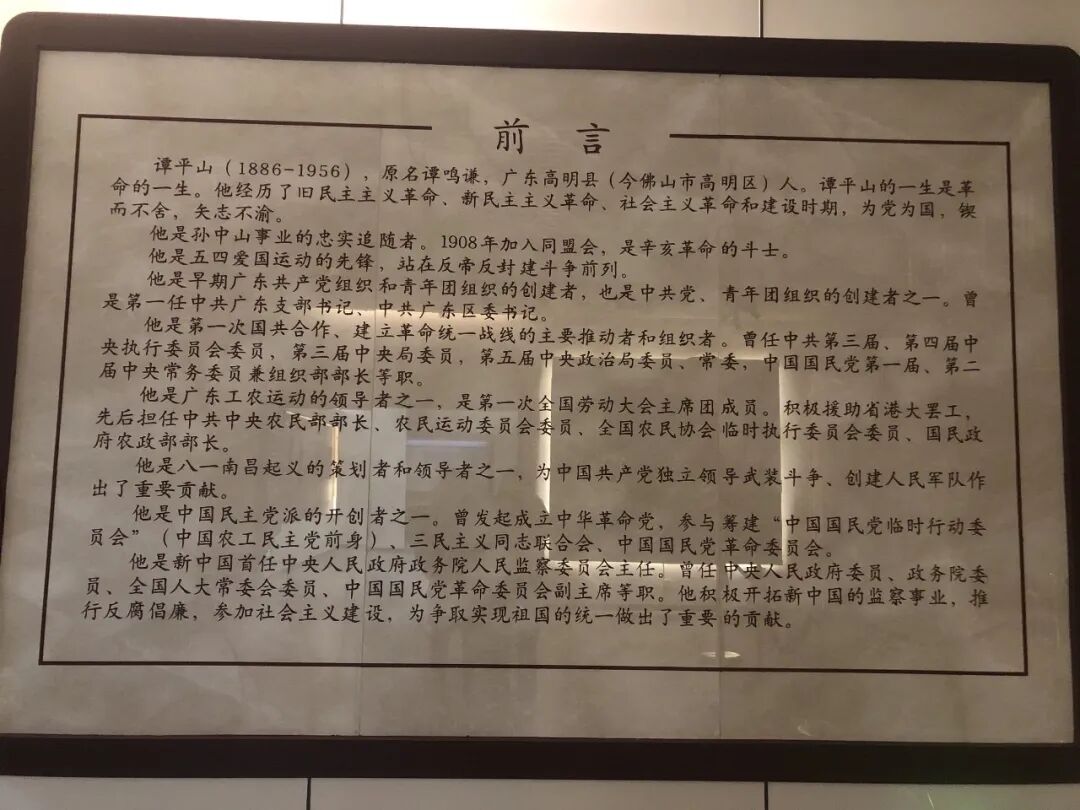 前言
谭平山(1886-1956),原名谭鸣谦,广东高明县(今佛山市高明区)人。谭平山的一生是革
命的一生。他经历了旧民主主义革命、新民主主义革命、社会主义革命和建设时期,为党为国,锲
而不舍,矢志不渝。
他是孙中山事业的忠实追随者。1908年加入同盟会,是辛亥革命的斗士。
他是五四爱国运动的先锋,站在反帝反封建斗争前列。
他是早期广东共产党组织和青年团组织的创建者,也是中共党、青年团组织的创建者之一。曾
是第一任中共广东支部书记、中共广东区委书记。
他是第一次国共合作、建立革命统一战线的主要推动者和组织者。曾任中共第三届、第四届中
央执行委员会委员,第三届中央局委员,第五届中央政治局委员、常委,中国国民党第一届、第二
届中央常务委员兼组织部部长等职。
他是广东工农运动的领导者之一,是第一次全国劳动大会主席团成员。积极援助省港大罢工,
先后担任中共中央农民部部长、农民运动委员会委员、全国农民协会临时执行委员会委员、国民政
府农政部部长。
他是八一南昌起义的策划者和领导者之一,为中国共产党独立领导武装斗争、创建人民军队作
出了重要贡献。
他是中国民主党派的开创者之一。曾发起成立中华革命党,参与筹建“中国国民党临时行动委
员会”(中国农工民主党前身)、三民主义同志联合会、中国国民党革命委员会。
他是新中国首任中央人民政府政务院人民监察委员会主任。曾任中央人民政府委员、政务院委
员、全国人大常委会委员、中国国民党革命委员会副主席等职。他积极开拓新中国的监察事业,推
行反腐倡廉,参加社会主义建设,为争取实现祖国的统一做出了重要的贡献。